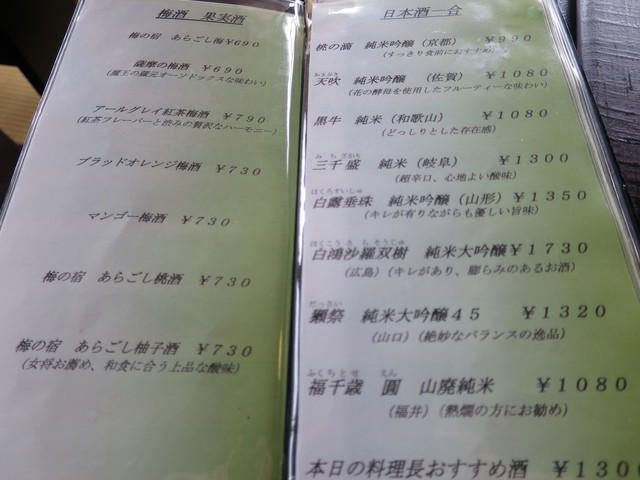 梅酒　果実酒
梅の宿　あらごし梅￥690
薩摩の梅酒　￥690
(魔王の蔵元オーソドックスな味わい)
アールグレイ紅茶梅酒　￥790
(紅茶フレーバーと渋みの贅沢なハーモニー)
ブラッドオレンジ梅酒　￥730
マンゴー梅酒　￥730
梅の宿　あらごし桃酒　￥730
梅の宿　あらごし柚子酒　￥730
(女将お薦め、和食に合う上品な酸味)
日本酒一合
桃の滴　純米吟醸（京都）　￥990
(すっきり食前におすすめ)
天吹　純米吟醸　（佐賀）　￥1080
(花の酵母を使用したフルーティーな味わい)
黒牛　純米（和歌山）　￥1080
(どっしりとした存在感)
みちざかり
三千盛　純米（岐阜）　￥1300
(超辛口、心地よい酸味)
はくろすいしゅ
白露垂珠　純米吟醸（山形）￥1350
(キレが有りながらも優しい旨味)
はくこう さ ら そうじゅ
白鴻沙羅双樹　純米大吟醸￥1730
（広島）（キレがあり、膨らみのあるお酒）
だっさい
獺祭　純米大吟醸45　￥1320
（山口）（絶妙なバランスの逸品）
ふくちとせ　えん
福千歳　圓　山廃純米　￥1080
（福井）（熱燗の方にお勧め）
本日の料理長おすすめ酒　￥1300